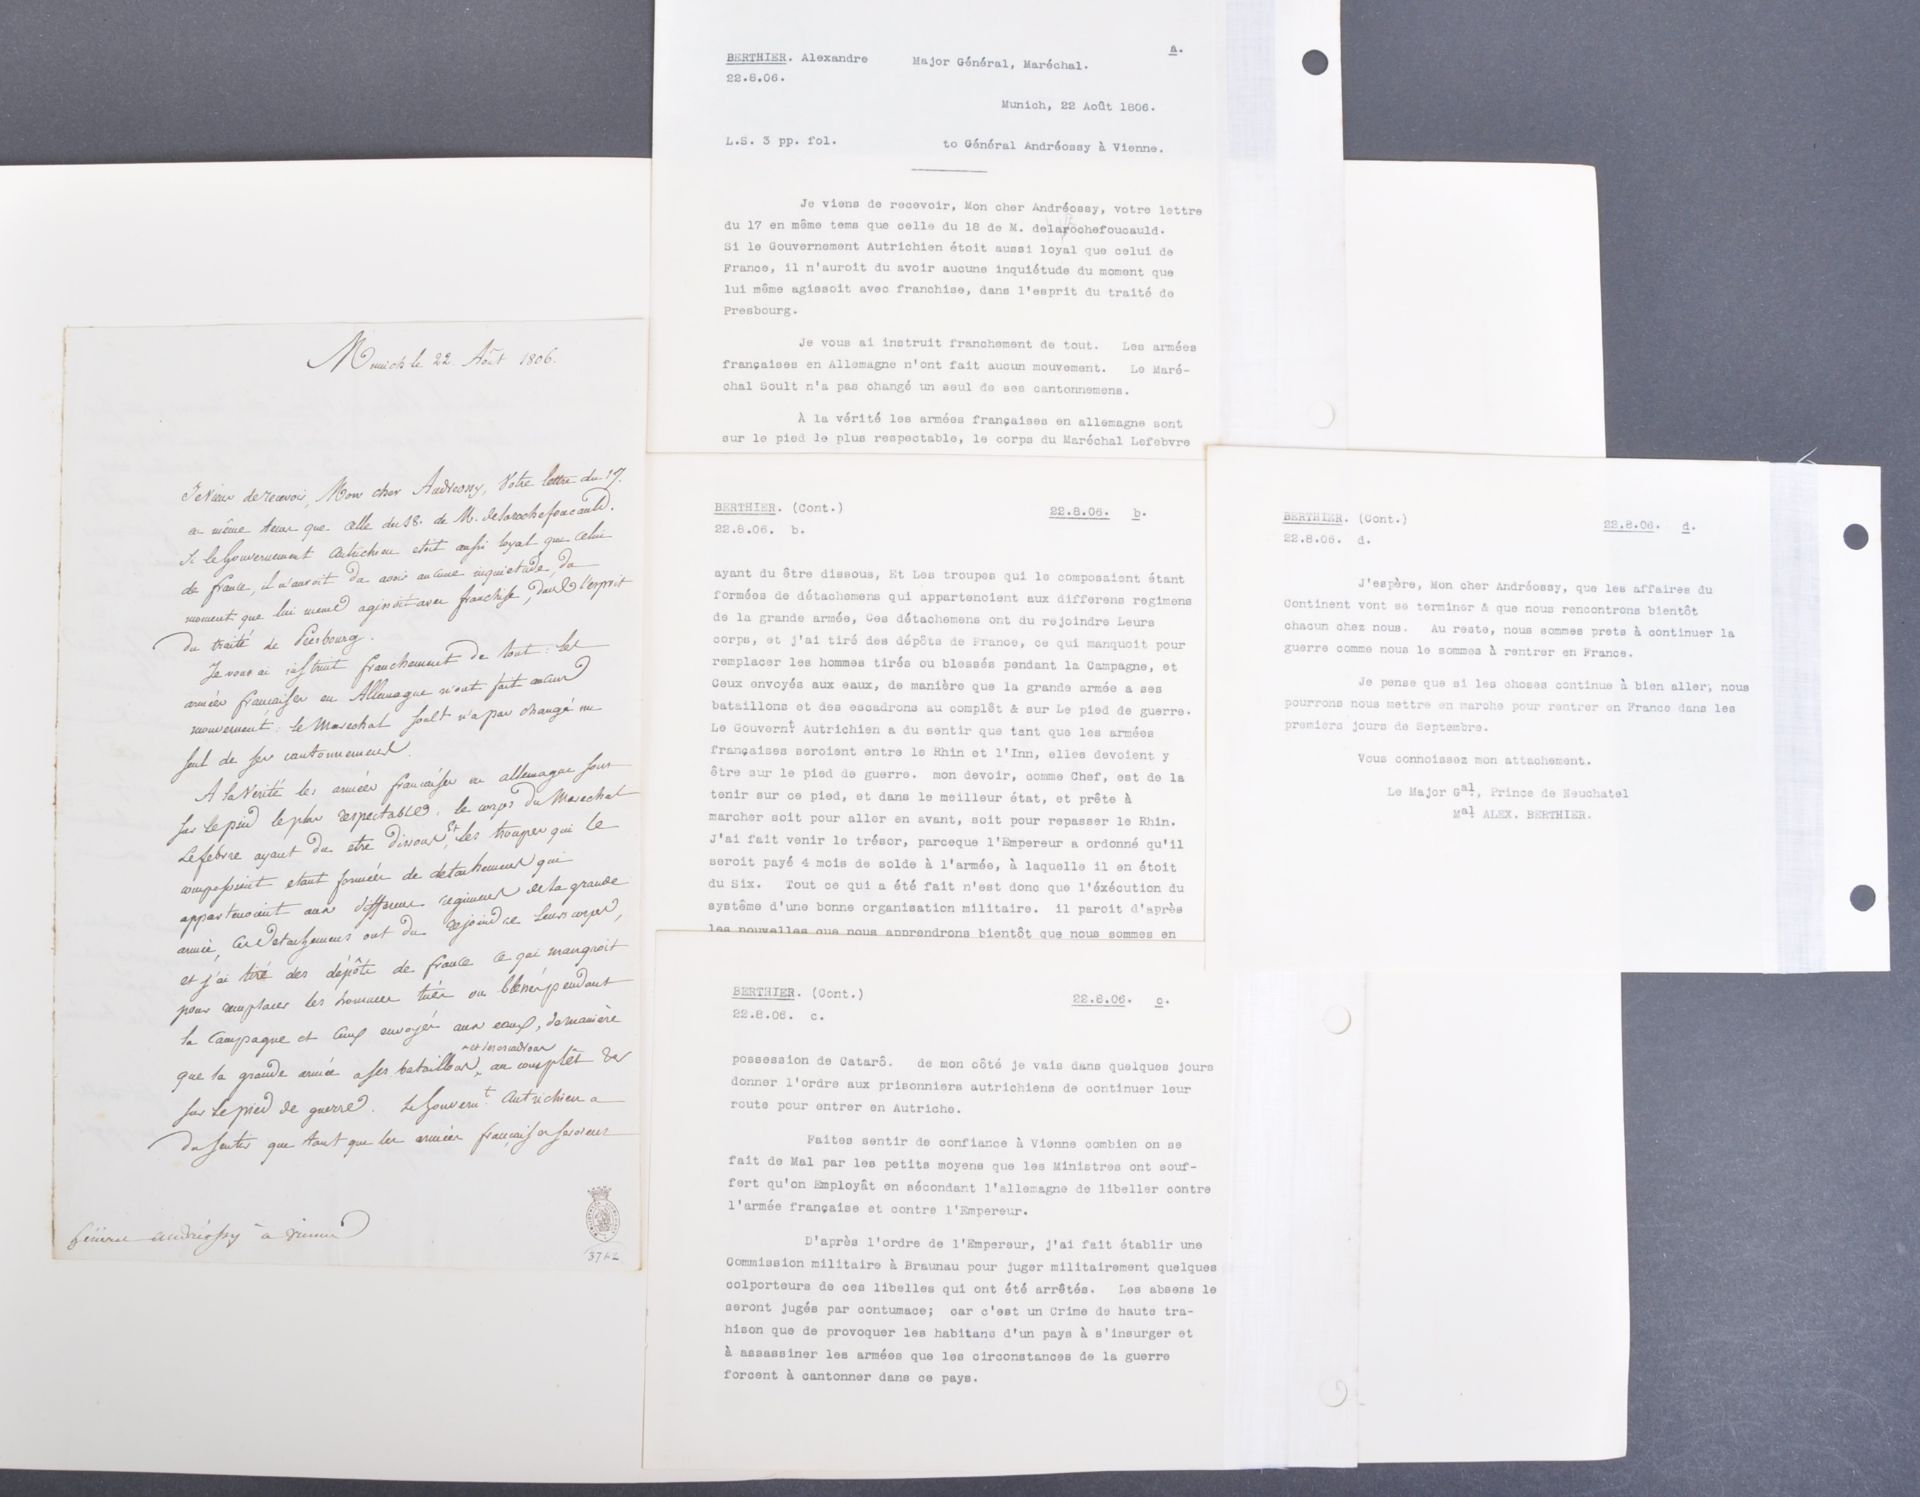 Munich le 22. Août 1806.
Je viens de recevoir, Mon cher Andreossy, Votre lettre du 17.
en même tems que celle du 18. de M. delarochefoucauld.
Si le Gouvernement Autrichien etoit aussi loyal que celui
de france, il n'auroit du avoir aucune inquietude, du
moment que lui meme agissoit avec franchise, dans l'esprit
du traité de Presbourg.
Je vous ai instruit franchement de tout: les
armées françaises en Allemagne n'ont fait aucun
mouvement: le Marechal Soult n'a pas changé un
seul de ses cantonnemens.
A la Vérité les armées françaises en allemagne sont
sur le pied le plus respectable, le corps du Marechal
Lefebvre ayant du etre dissous, Et les troupes qui le
composoient etant formées de detachemens qui
appartenoient aux differens regimens de la grande
armée, Ces detachemens ont du rejoindre Leurs corps,
et j'ai tiré des dépôts de france ce qui manquoit
pour remplacer les hommes tués ou blessés pendant
la Campagne et Ceux envoyés aux eaux, de manière
que la grande armée a ses bataillons ^et ses escadrons au complêt &
sur Le pied de guerre. Le Gouvernt. Autrichien a
du sentir que tant que les armées françaises seroient
Général andréossy à vienne
3742
BERTHIER. Alexandre Major Général, Maréchal. a.
22.8.06.
Munich, 22 Août 1806.
L.S. 3 pp. fol. to Général Andréossy à Vienne.
Je viens de recevoir, Mon cher Andréossy, votre lettre
du 17 en même tems que celle du 18 de M. delarochefoucauld.
Si le Gouvernement Autrichien étoit aussi loyal que celui de
France, il n'auroit du avoir aucune inquiétude du moment que
lui même agissoit avec franchise, dans l'esprit du traité de
Presbourg.
Je vous ai instruit franchement de tout. Les armées
françaises en Allemagne n'ont fait aucun mouvement. Le Maré-
chal Soult n'a pas changé un seul de ses cantonnemens.
À la vérité les armées françaises en allemagne sont
sur le pied le plus respectable, le corps du Maréchal Lefebvre
BERTHIER. (Cont.) 22.8.06. b.
22.8.06. b.
ayant du être dissous, Et Les troupes qui le composaient étant
formées de détachemens qui appartencient aux differens regimens
de la grande armée, Ces détachemens ont du rejoindre Leurs
corps, et j'ai tiré des dépôts de France, ce qui manquoit pour
remplacer les hommes tirés ou blessés pendant la Campagne, et
Ceux envoyés aux eaux, de manière que la grande armée a ses
bataillons et des escadrons au complêt & sur Le pied de guerre.
Le Gouvernt. Autrichien a du sentir que tant que les armées
françaises seroient entre le Rhin et l'Inn, elles devoient y
être sur le pied de guerre. mon devoir, comme Chef, est de la
tenir sur ce pied, et dans le meilleur état, et prête à
marcher soit pour aller en avant, soit pour repasser le Rhin.
J'ai fait venir le trésor, parceque l'Empereur a ordonné qu'il
seroit payé 4 mois de solde à l'armée, à laquelle il en étoit
du Six. Tout ce qui a été fait n'est donc que l'éxécution du
systême d'une bonne organisation militaire. il paroit d'après
les nouvelles que nous apprendrons bientôt que nous sommes en
BERTHIER. (Cont.) 22.8.06. c.
22.8.06. c.
possession de Catarô. de mon côté je vais dans quelques jours
donner l'ordre aux prisonniers autrichiens de continuer leur
route pour entrer en Autriche.
Faites sentir de confiance à Vienne combien on se
fait de Mal par les petits moyens que les Ministres ont souf-
fert qu'on Employât en sécondant l'allemagne de libeller contre
l'armée française et contre l'Empereur.
D'après l'ordre de l'Empereur, j'ai fait établir une
Commission militaire à Braunau pour juger militairement quelques
colporteurs de ces libelles qui ont été arrêtés. Les absens le
seront jugés par contumace; car c'est un Crime de haute tra-
hison que de provoquer les habitans d'un pays à s'insurger et
à assassiner les armées que les circonstances de la guerre
forcent à cantonner dans ce pays.
BERTHIER. (Cont.) 22.8.06. d.
22.8.06. d.
J'espère, Mon cher Andréossy, que les affaires du
Continent vont se terminer & que nous rencontrons bientôt
chacun chez nous. Au reste, nous sommes prets à continuer la
guerre comme nous le sommes à rentrer en France.
Je pense que si les choses continue à bien aller, nous
pourrons nous mettre en marche pour rentrer en France dans les
premiers jours de Septembre.
Vous connoissez mon attachement.
Le Major Gal., Prince de Neuchatel
Mal ALEX. BERTHIER.